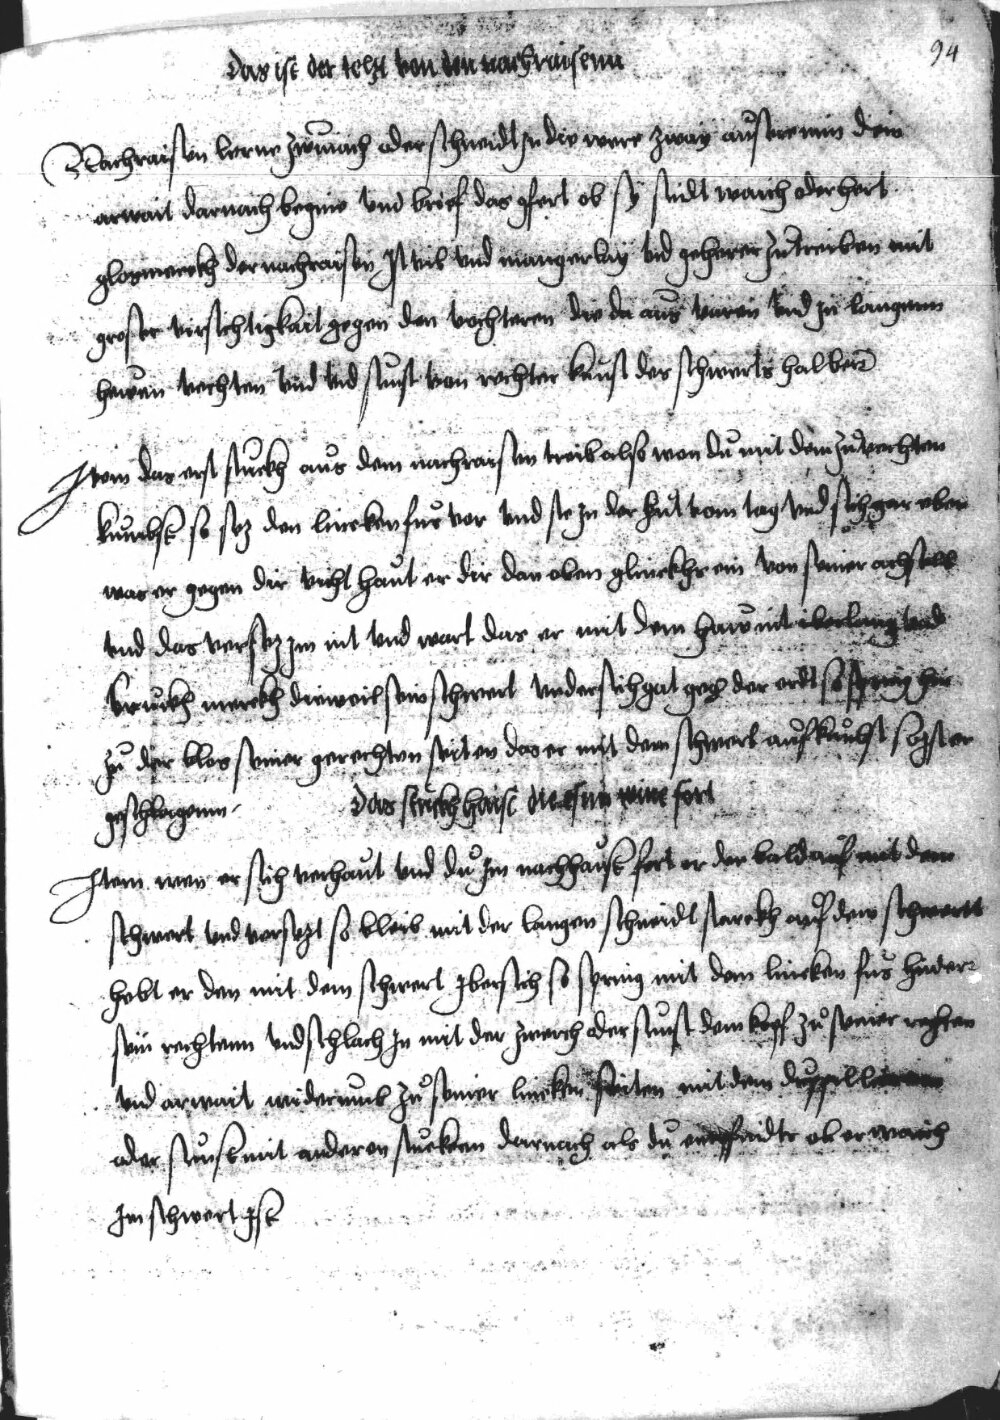 94
Das ist der tehxt von den nachraisenn
Nachraisen lerne zwuiach oder schneidt In die were zway austre min dein
arwait darnach beginn vnd brief das gfert ob sy sindt waich oder hert
glos merckh der nachraisen Ist vil vnd mangerlay vnd geherez zu treiben mit
groser virsichtigkait gegen den vechteren die da aus varen vnd zu langenn
hewen vechten vnd vnd sunst von rechter kunst des schwerts halben
Item das erst stuckh aus dem nachraisen treib also wen du mit dem zuvechten
kumbst so sez den lincken fus vor vnd ste In der hut vom tag vnd sich gar eben
was er gegen dir vicht haut er dir dan oben glinckhs ein von seiner achslen
vnd das versez im nit vnd wart das er mit dem haw nit iberlang vnd
merckh dieweil sein schwert vndersich gat gegen der erdt so spring hin
zu der blos seiner gerechten seiten das er mit dem schwert auf kumbst so ist er
geschlagenn Das stuckh haist fort
Item wen er sich verhaut vnd du Im nachhaust fert er der bald auf mit dem
schwert vnd versezt so bleib mit der langen schneidt starckh auf dem schwertt
hebt er den mit dem schwert ybersich so spring mit dem lincken fus hinder
sein rechtenn vnd schlach In mit der zwerch oder sunst dem kopf zu seiner rechten
vnd arwait widerumb zu seiner lincken seiten mit dem duppliern
oder sunst mit anderen stucken darnach als du entpfindtz ob er waich
Im schwert Ist